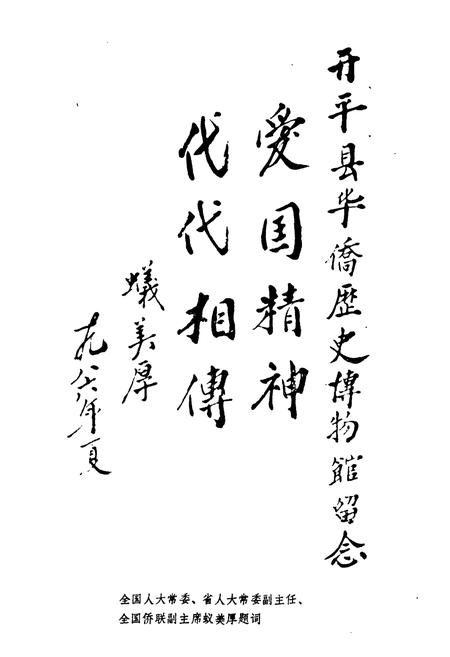 开平县华僑歷史博物館留念
愛国精神
代代相傳
蟻美厚
一九八六年夏
全国人大常委、省人大常委副主任、
全国侨联副主席蚁美厚题词